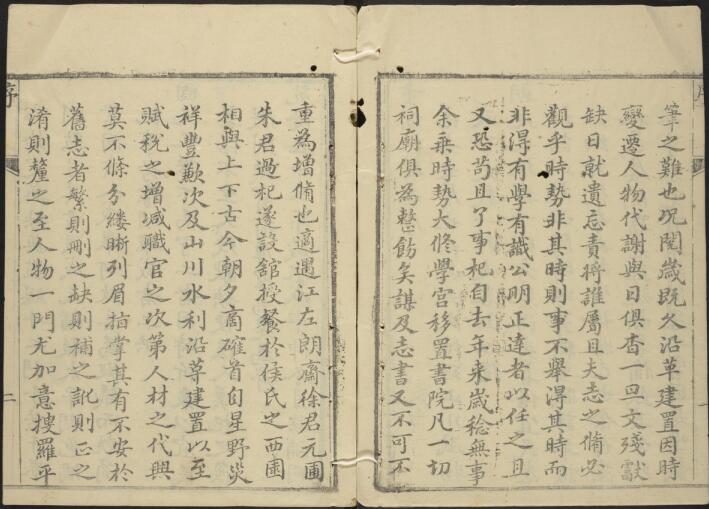 筆之難也况閱歲既久沿革建置因時
變遷人物代謝與日俱杳一旦文殘獻
缺日就遺忘責將誰屬且夫志之脩必
觀乎時勢非其時則事不舉得其時而
非得有學有識公明正達者以任之且
又恐苟且了事杞自去年来歲稔無事
余乗時勢大修學宮移置書院凡一切
祠廟俱為整飭矣謀及志書又不可不
重為增脩也適遇江左朗齋徐君元圃
朱君過杞遂設舘授餐於侯氏之西圃
相與上下古今朝夕商確首自星野災
祥豐歉次及山川水利沿革建置以至
賦稅之增减職官之次第人材之代興
莫不條分縷晰列眉指掌其有不安於
舊志者繁則刪之缺則補之訛則正之
淆則釐之至人物一門尤加意搜羅平
序
二